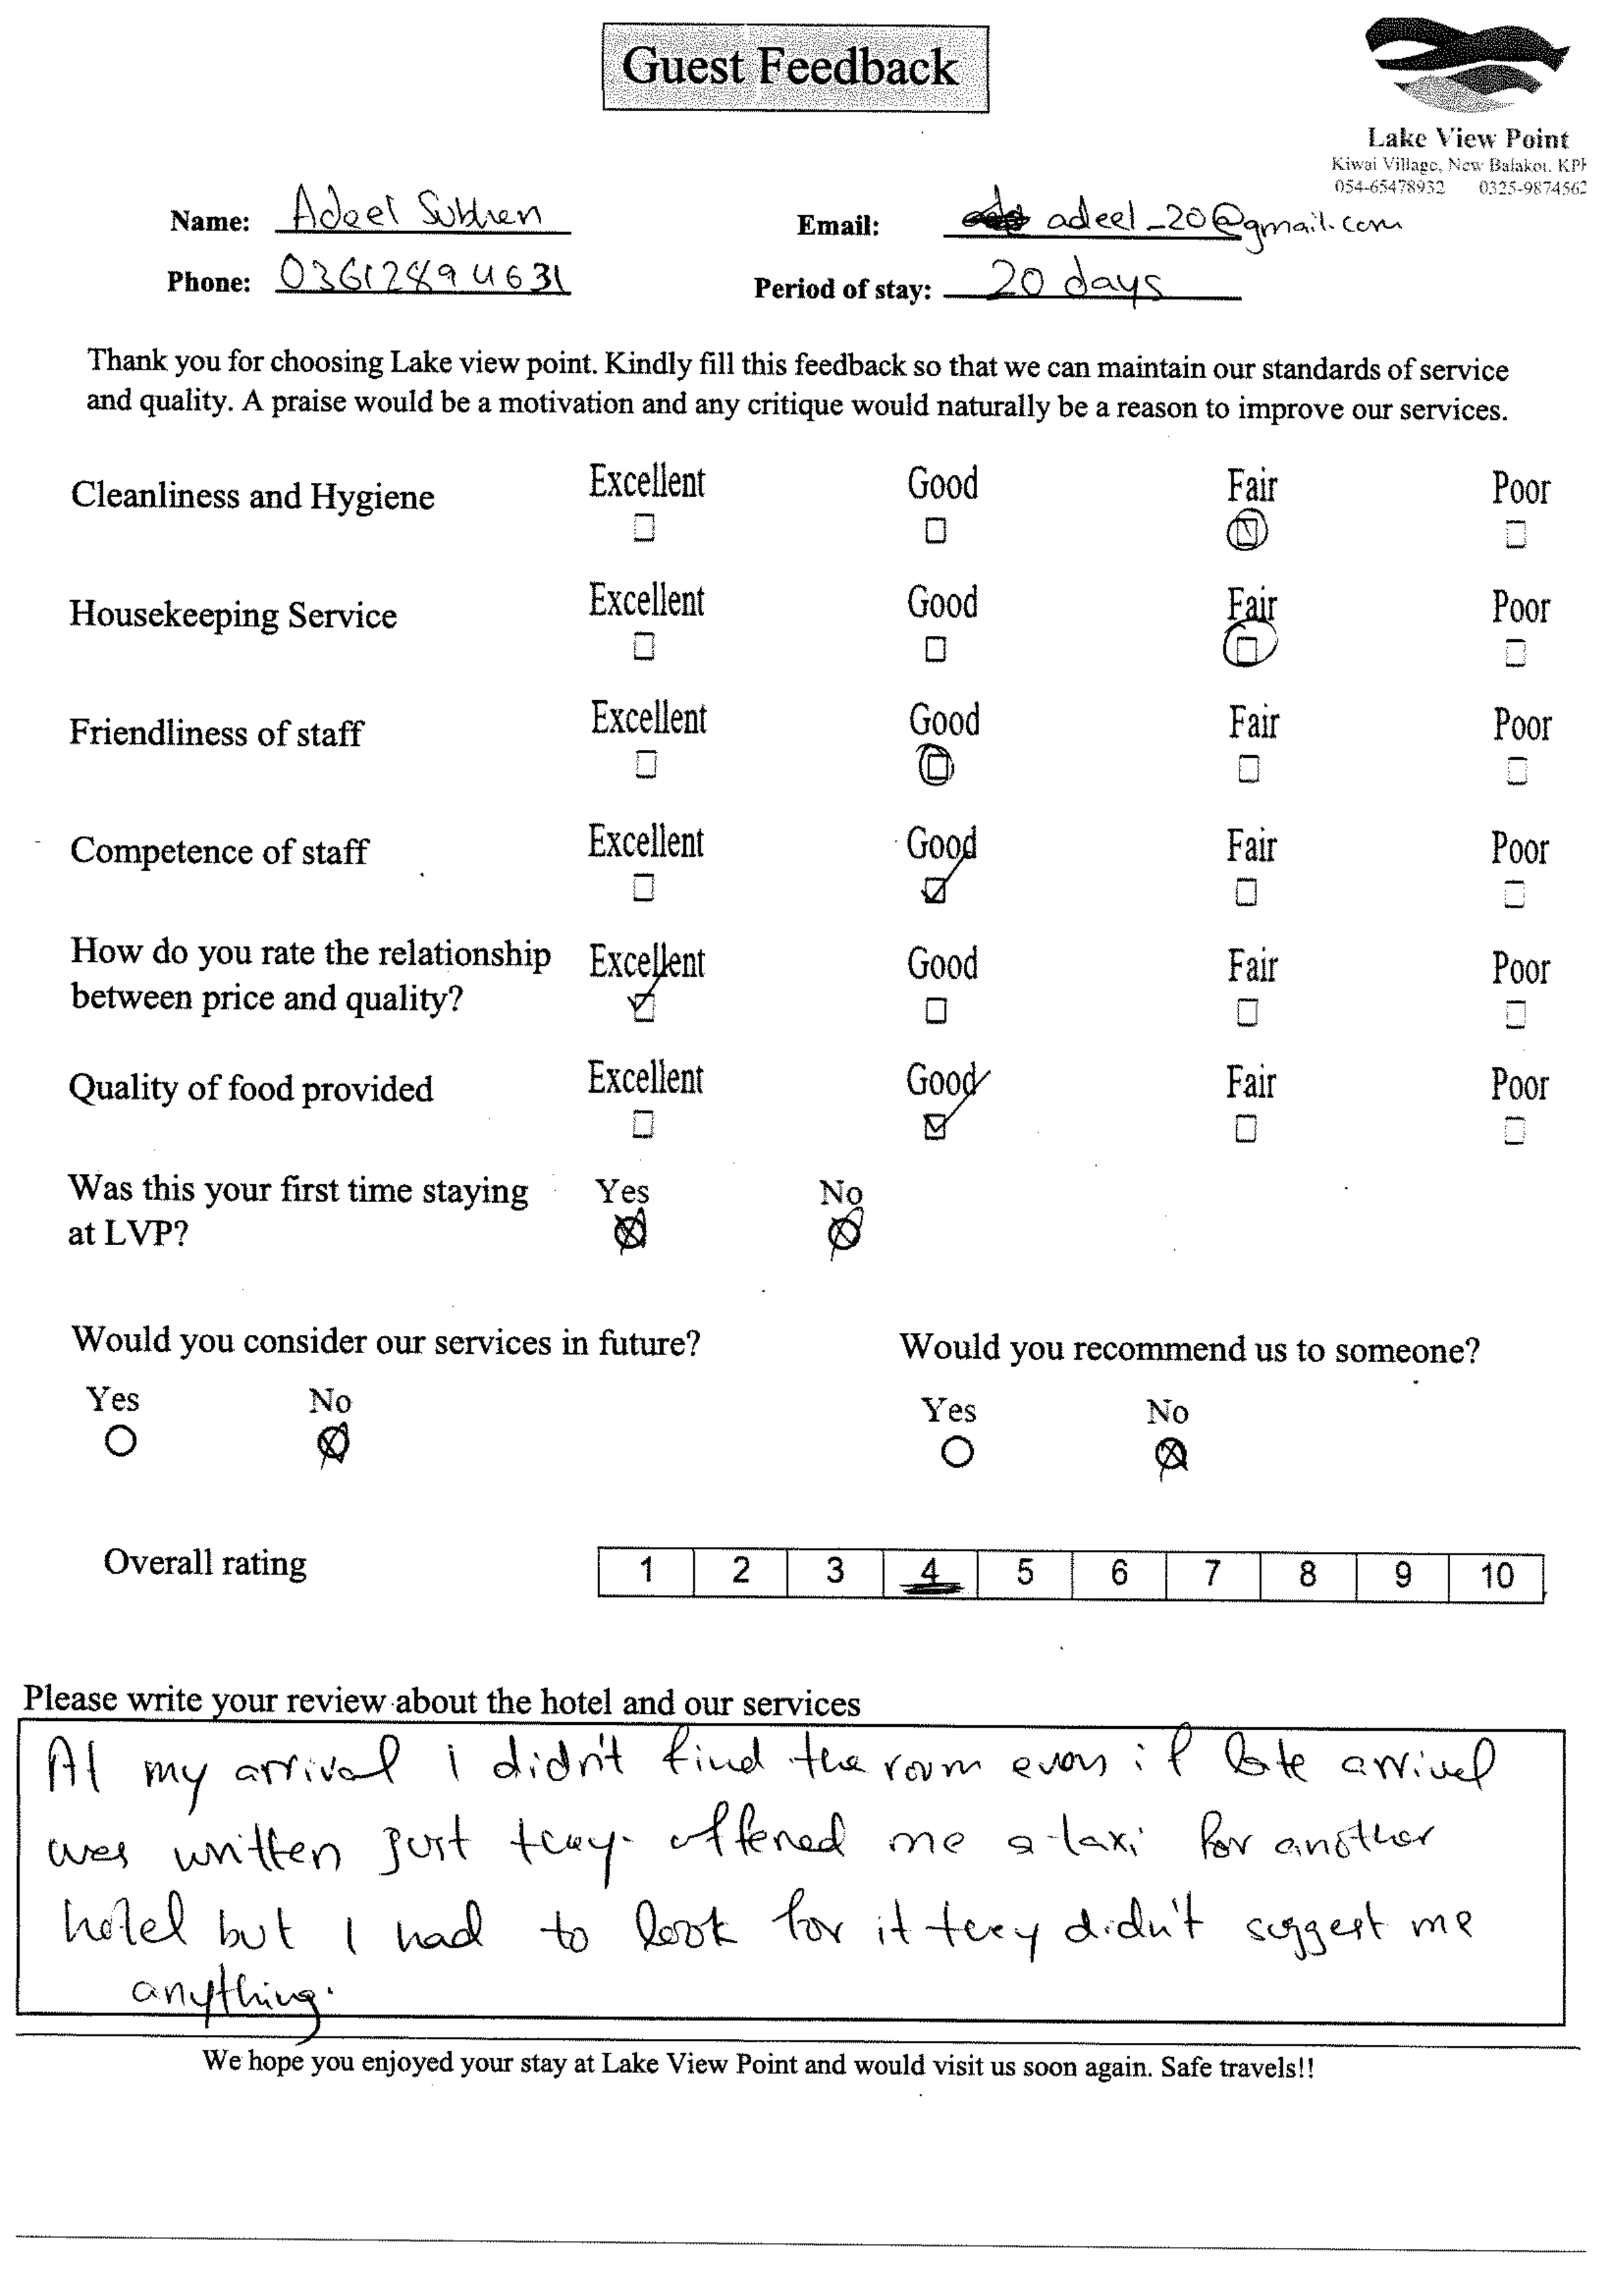 Guest Feedback
Lake View Point
Kiwai Village, New Balakot, KPK
054-65478932 0325-9874562
Name: Adeel
Email: adeel_20@gmail.com
Phone: 03612894631
Period of stay: 20 days
Thank you for choosing Lake view point. Kindly fill this feedback so that we can maintain our standards of service
and quality. A praise would be a motivation and any critique would naturally be a reason to improve our services.
Cleanliness and Hygiene Excellent Good Fair Poor
Housekeeping Service Excellent Good Fair Poor
Friendliness of staff Excellent Good Fair Poor
Competence of staff Excellent Good Fair Poor
How do you rate the relationship
between price and quality? Excellent Good Fair Poor
Quality of food provided Excellent Good Fair Poor
Was this your first time staying Yes No
at LVP?
Would you consider our services in future? Would you recommend us to someone?
Yes No Yes No
Overall rating 1 2 3 4 5 6 7 8 9 10
Please write your review about the hotel and our services
At my arrival i didn't find the room even if late arrival
was written just they offered me a taxi for another
hotel but I had to look for it they didn't suggest me
anything.
We hope you enjoyed your stay at Lake View Point and would visit us soon again. Safe travels!!